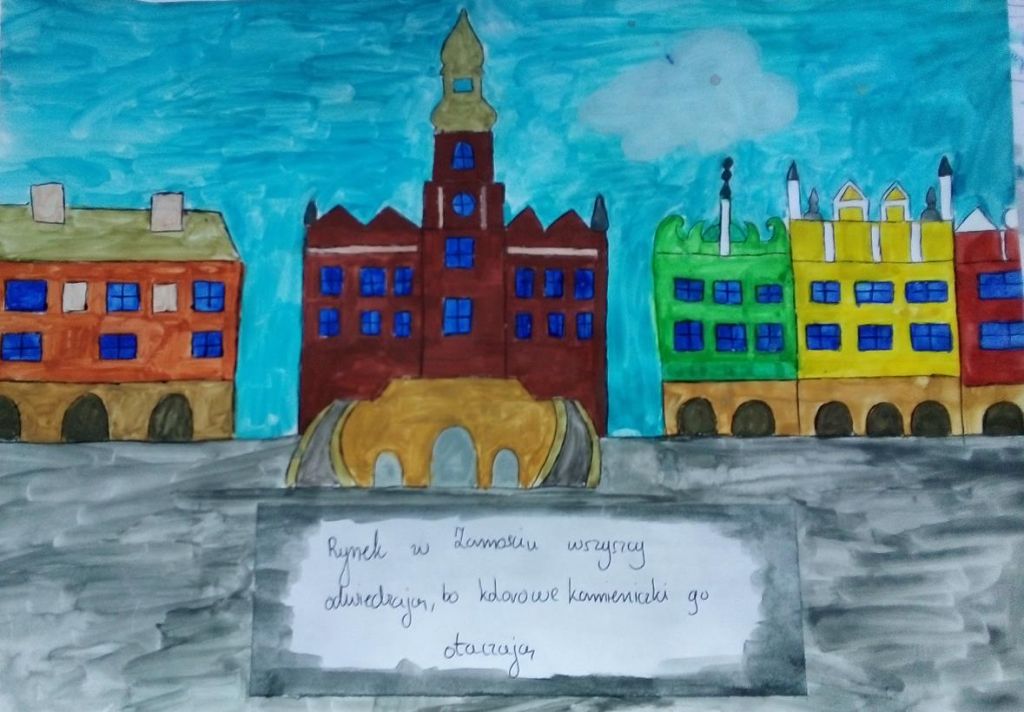 Rynek w Zamościu wszyscy
odwiedzają, bo kolorowe kamieniczki go
otaczają